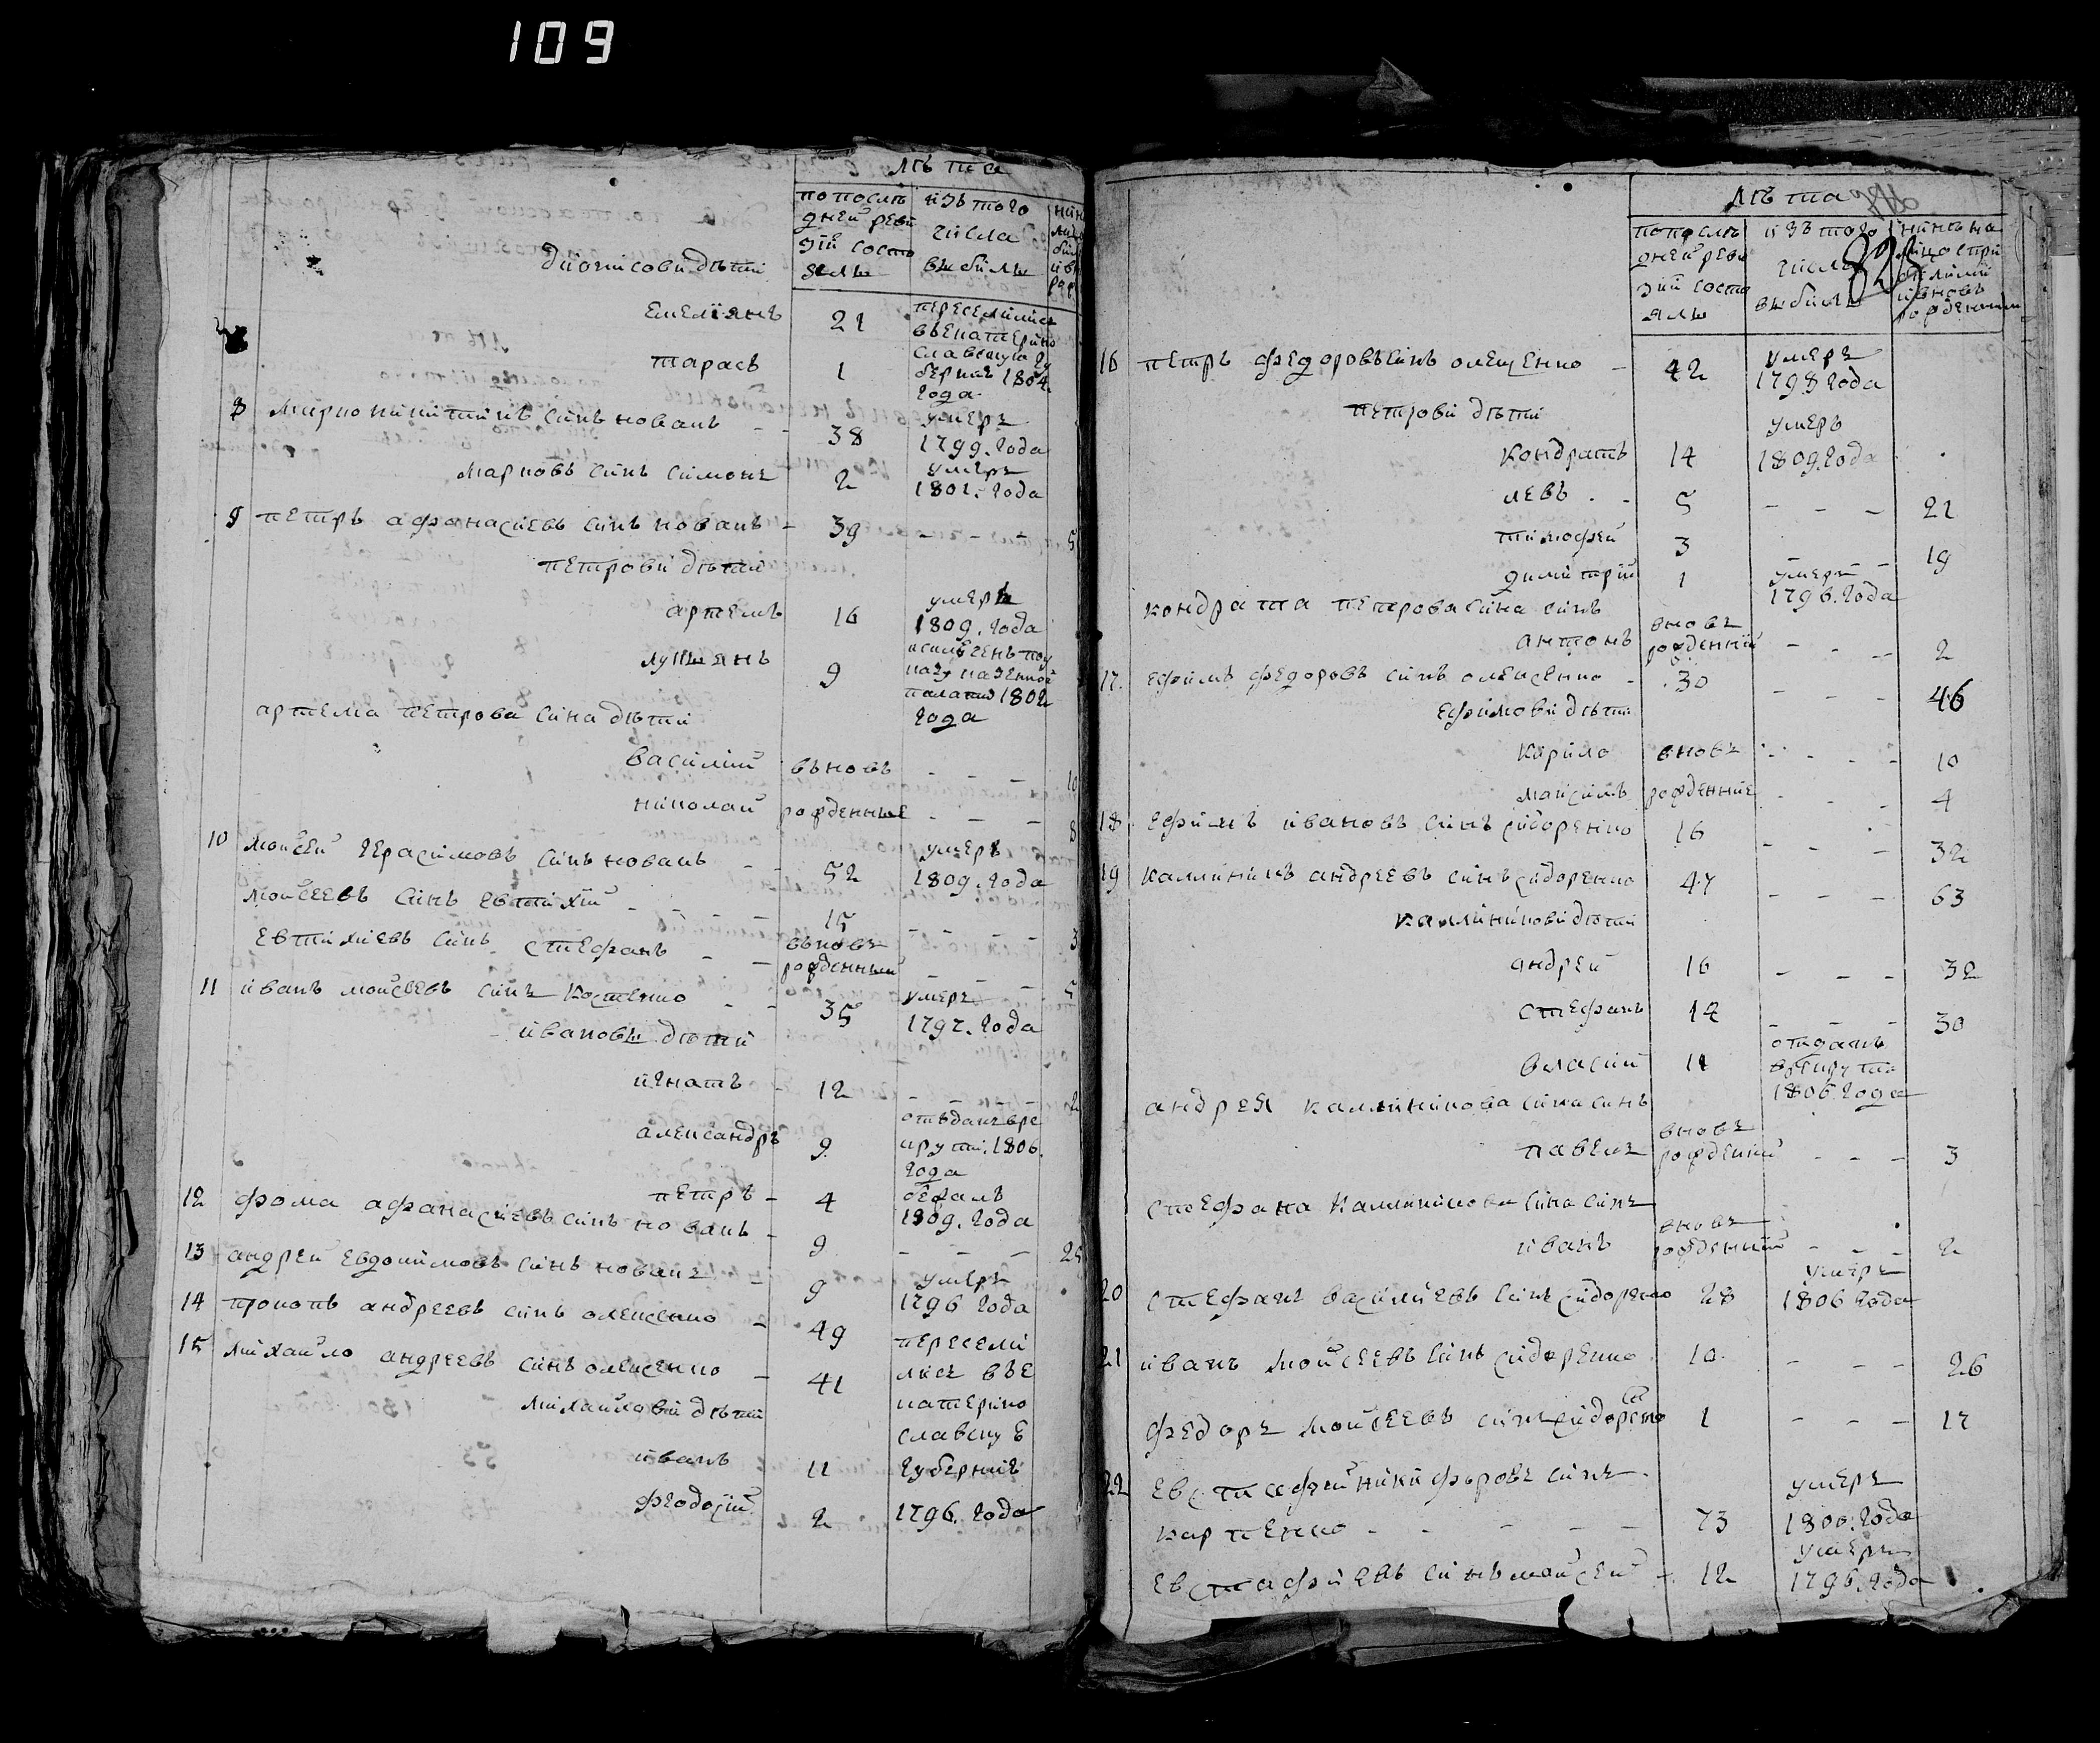 109
лѣта
по послѣ
дней реви
зіи состо
ялы
изъ того
числа
выбылы
Дионисови дѣти
Емеліянъ 21 переселились
въ екатерино
славскую гу
Тарасъ 1 берніѣ 1804
года
8 Марко никитинъ синъ ковалъ - - 38 умеръ
1799. года
Марковъ синъ Симонъ 2 умеръ
1801. года
9 Петръ афанасиевъ синъ ковалъ - 39 - - - 5
Петрови дѣти
артемъ 16 умеръ
1809. года
лукьянъ 9
казенной
палаты 1802
года
артема Петрова сина дѣти
василий въновь - - - 10
николай рожденные - - - 8
10 Мойсей герасимовъ синъ ковалъ - - 52 умеръ
1809. года
Мойсеевъ синъ евтихій - - - - 15 - - - - 3
евтихиевъ синъ стефанъ - - въновь
рожденный - - - 5
11 иванъ мойсеевъ синъ Костенко - - 35 умеръ
1797. года
ивановы дѣти
игнатъ - 12 - - - - 2
александръ 9. отъданъ въ ре
круты. 1806.
года
петръ - 4 бежалъ
1809. года
12 фома афанасиевъ синъ ковалъ - 9 - - - 25
13 андрей евдокимовъ синъ ковалъ - - 9 умеръ
1796 года
14 прокопъ андреевъ синъ олексенко - 49 пересели
15 Михайло андреевъ синъ олексенко - 41 лись въ е
катерино
Михайлови дѣти славску е
иванъ 11 губерніѣ
феодосий 2 1796. года
лѣта
по послѣ
дней реви
зіи состо
ялы
изъ того
числа
выбылы
895
нинѣ на
лицо с при
былими
и вновь
рожденними
16 Петръ федоровъ синъ олещенко - 42 умеръ
1798 года
Петрови дѣти
Кондратъ 14 умеръ
1809. года
левъ. - 5 - - - 21
тимофей 3 - - - 19
димитрий 1 умеръ
1796. года
Кондрата петрова сина синъ
антонъ вновь
рожденный - - - 2
17. ефимъ федоровъ синъ олексенко - 30 - - - 46
ефимови дѣти
Карило вновь - - - - 10
Максимъ рожденние - - - 4
18 ефимъ ивановъ синъ сидоренко 16 - - - 32
19 Калиникъ андреевъ синъ сидоренко 47 - - - 63
Калиникови дѣти
андрей 16 - - - 32
стефанъ 14 - - - 30
власий 11 отданъ
в рекруты
1806. года
андрея калиникова сина синъ
павелъ вновь
рожденный - - - 3
стефана Калиникова сина синъ
иванъ вновь
рожденный - - - 2
20 стефанъ василиевъ синъ сидоренко 28 умеръ
1806 года
21 иванъ мойсеевъ синъ сидоренко 10 - - - 26
федоръ мойсеевъ синъ сидоренко 1 - - - 17
22 евстафий никифоровъ синъ
карпенко - - - - - 73 умеръ
1800. года
евстафиевъ синъ мойсей - 12 умеръ
1796. года